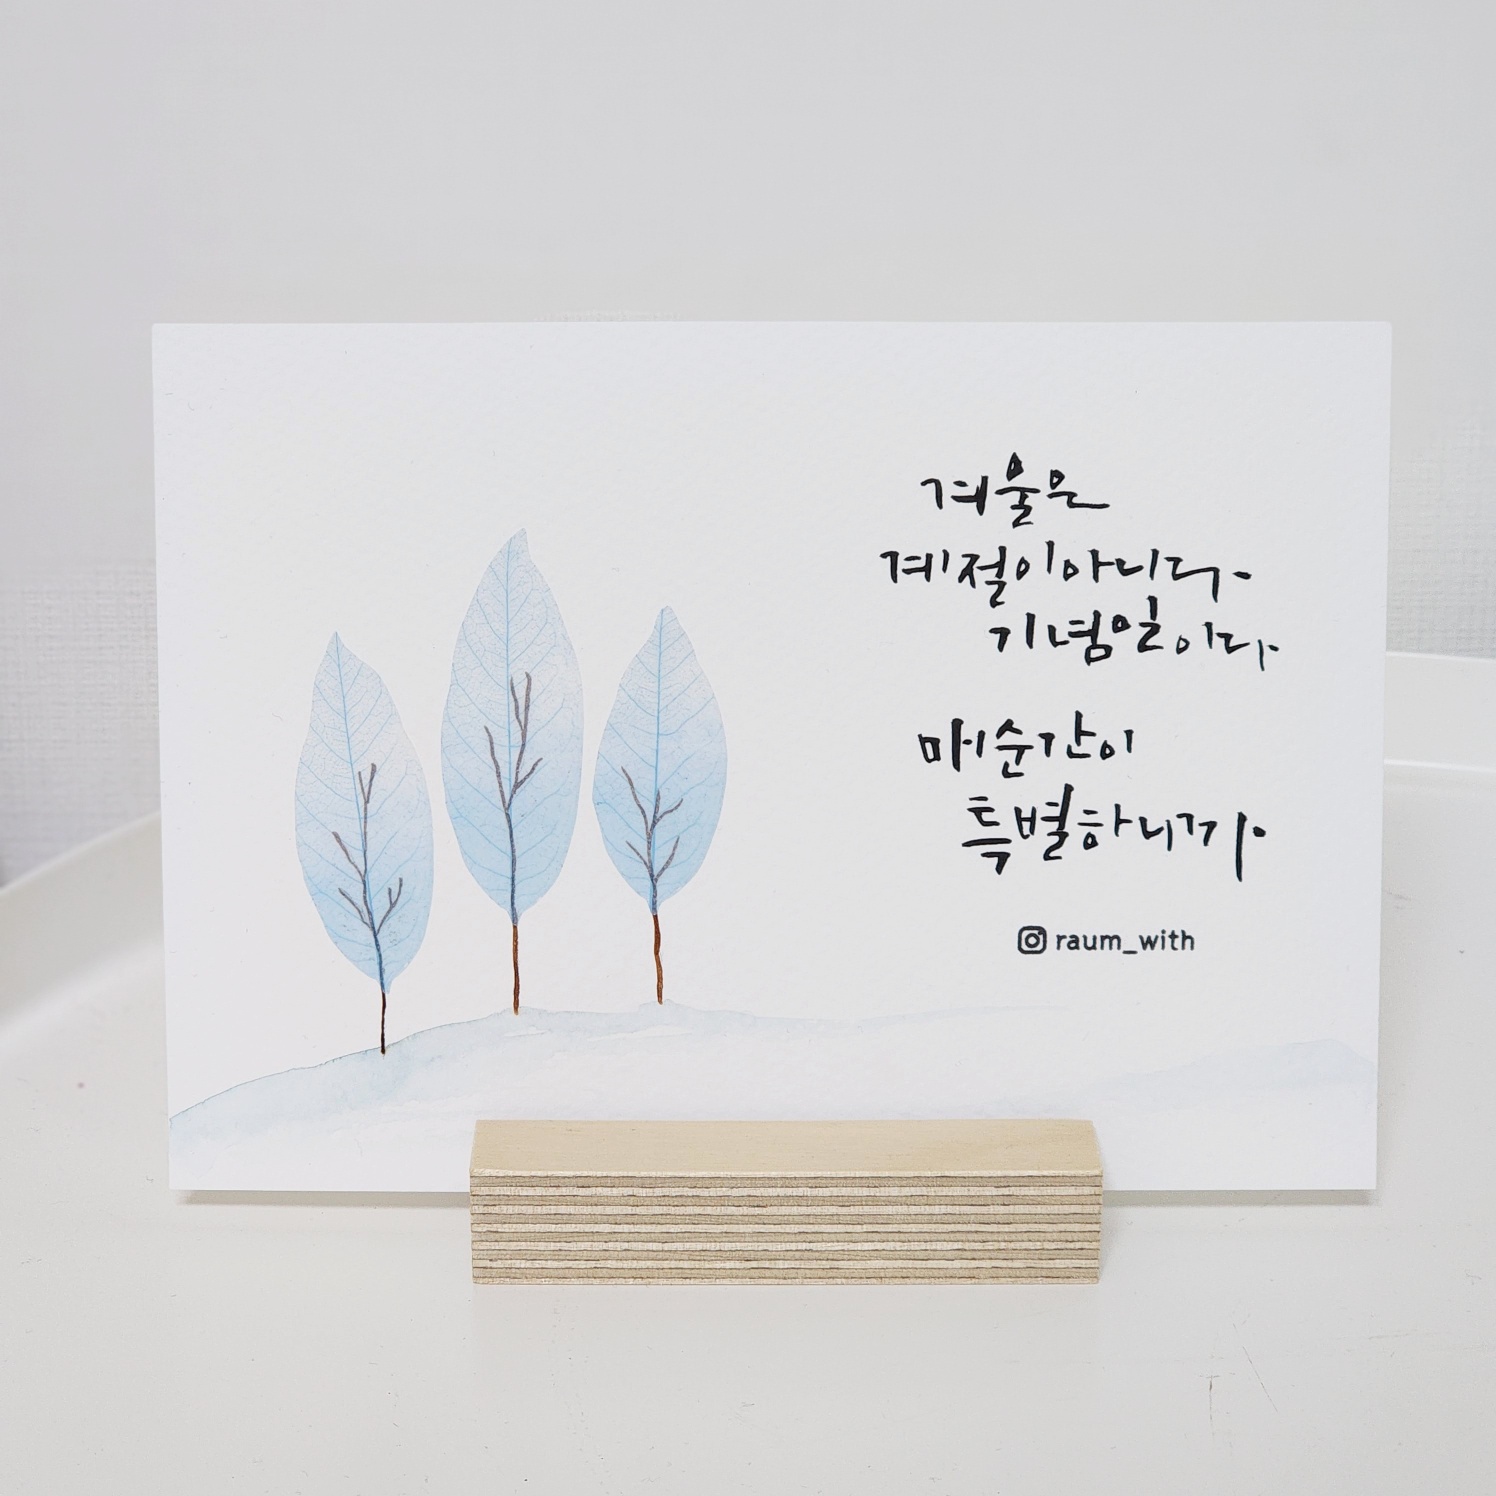 겨울은
계절이 아니다.
기념일이다.
매 순간이
특별하니까.
raum_with